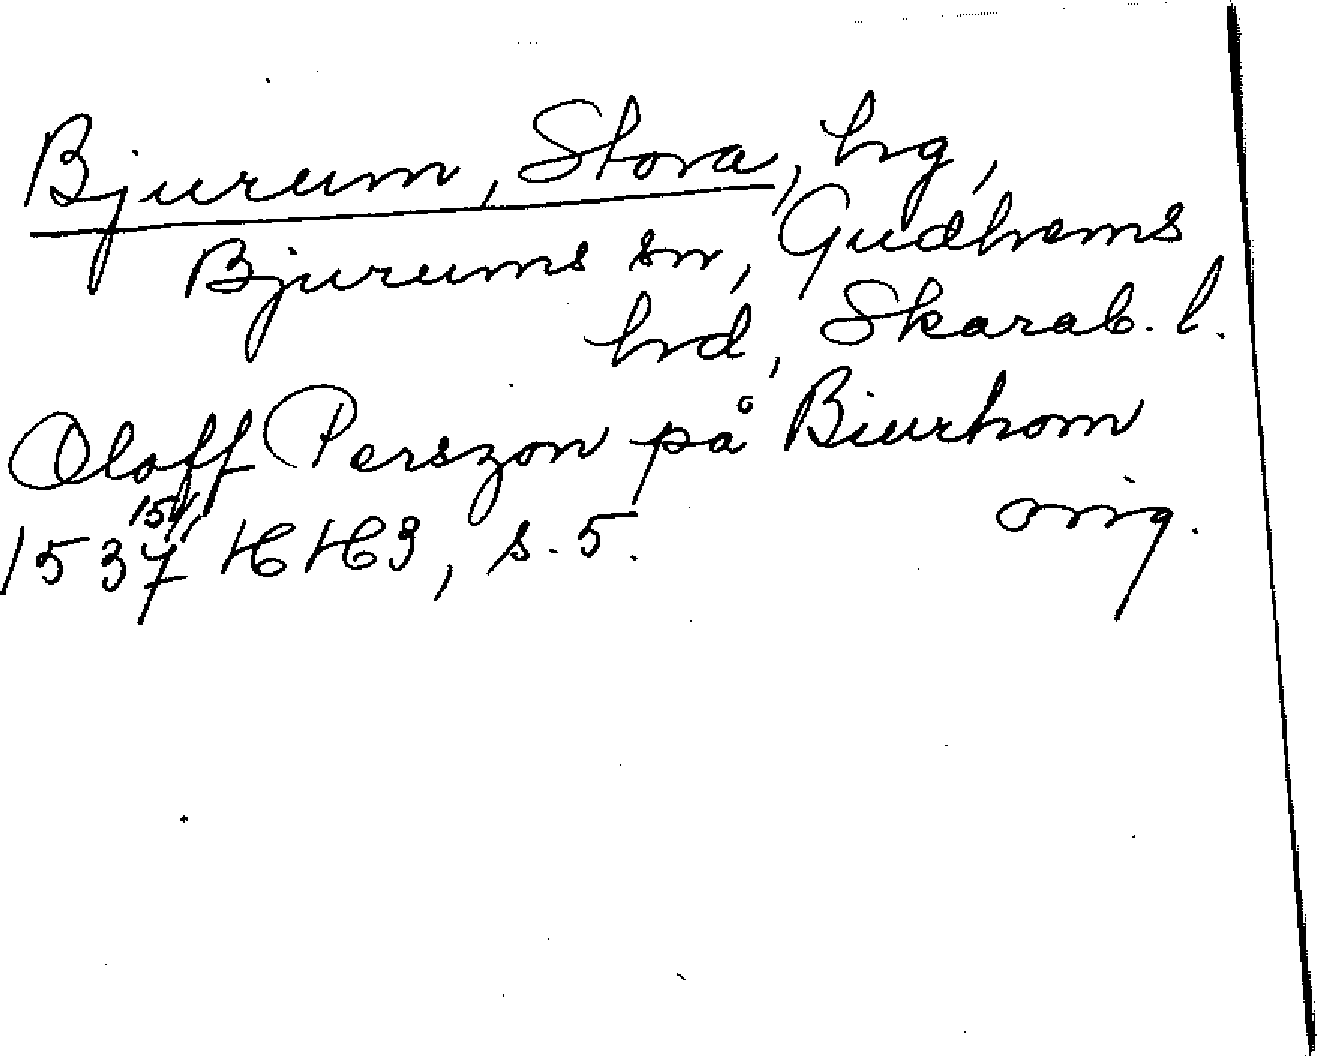 Bjurum, Stora, hg,
Bjurums sn, Gudhems
hrd, Skarab. l.
Oloff Perszon på Biurhom
orig.
1537 15/1, HH3, s. 5.